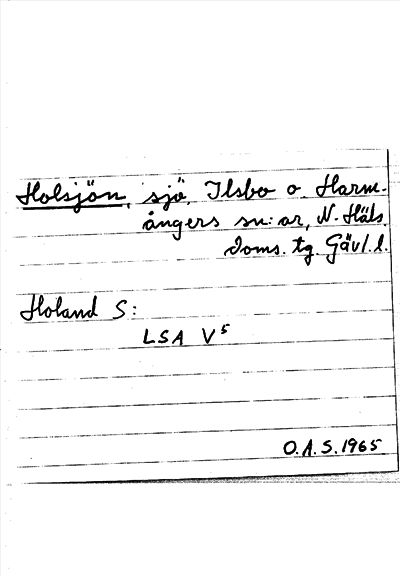 Holsjön, sjö, Ilsbo o. Harm-
ångers sn:ar, N. Häls.
doms. tg. Gävl. l.
Holand S:
LSA V⁵
O.A.S. 1965